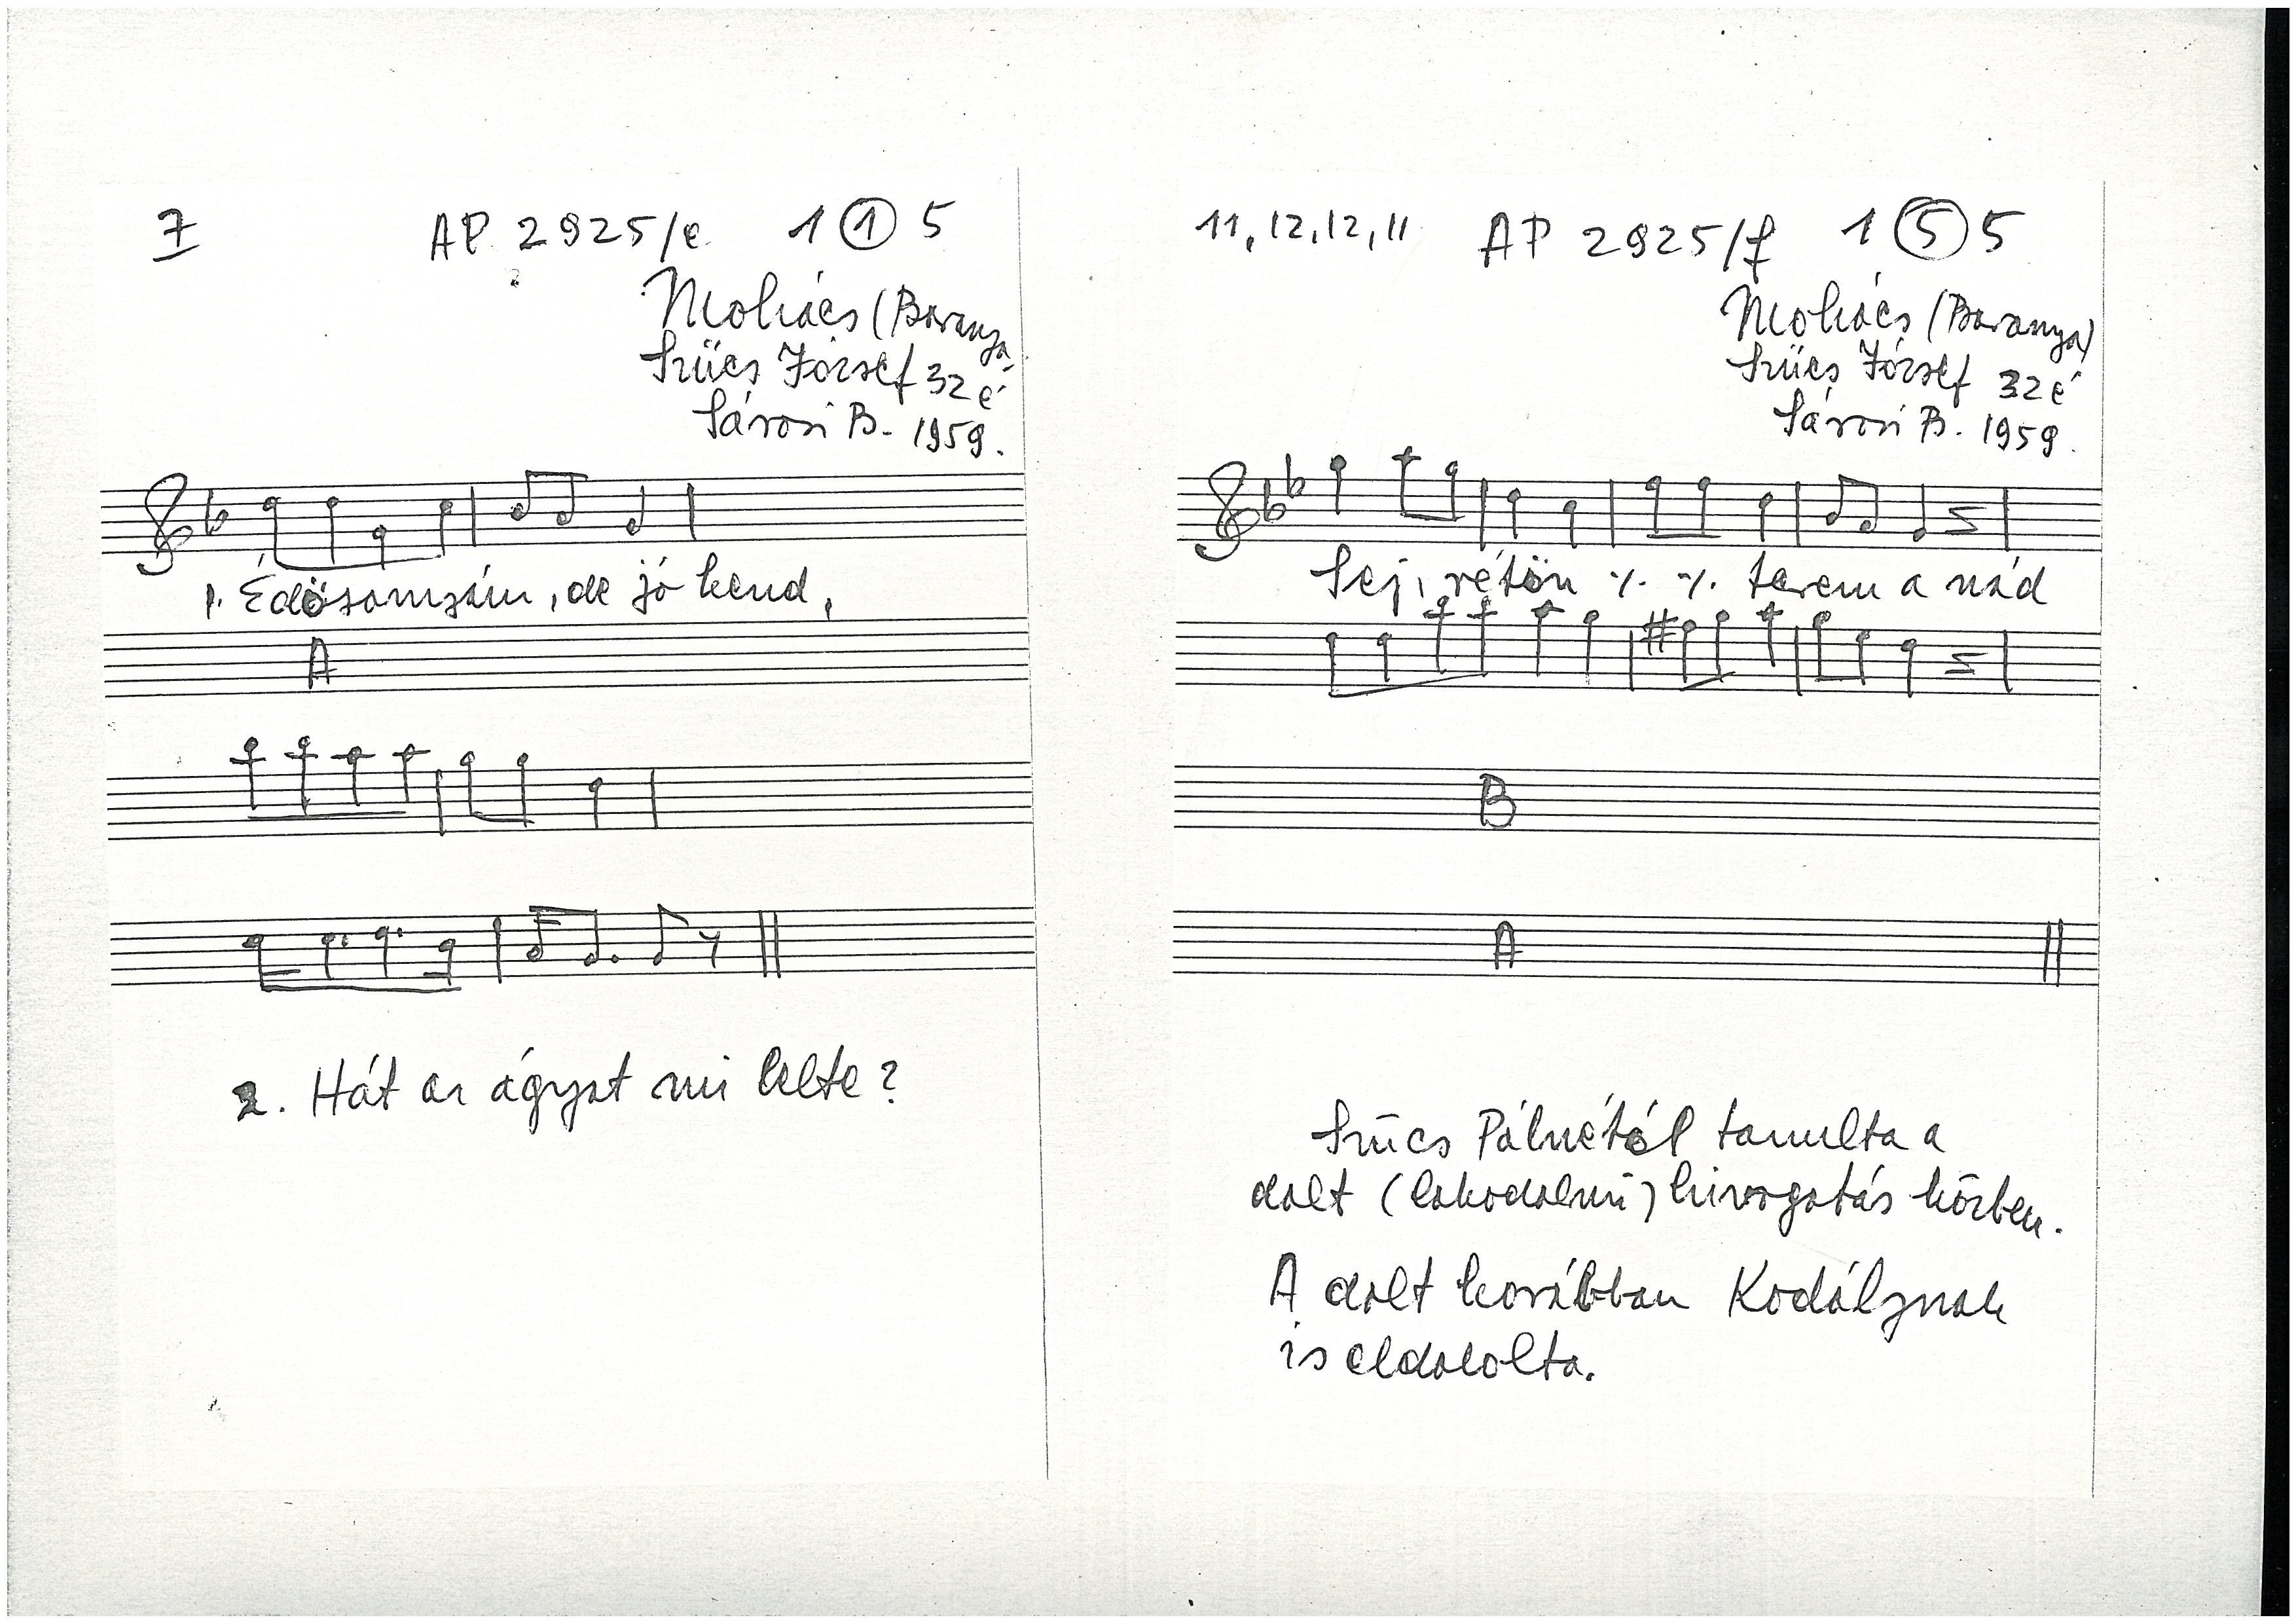 7 AP 2925/e 1 1 5
Mohács (Baranya
Szücs József 32 é
Sárosi B. 1959.
1. Édösanyám, de jó kend,
A
2. Hát az ágyat mi lelte?
11, 12, 12, 11 AP 2925/f 1 5 5
Mohács (Baranya)
Szücs József 32 é
Sárosi B. 1959.
Sej, rétön ·/. ·/. terem a nád
B
A
Szűcs Pálnétól tanulta a
dalt (lakodalmi) hivogatás közben.
A dalt korábban Kodálynak
is eldalolta.